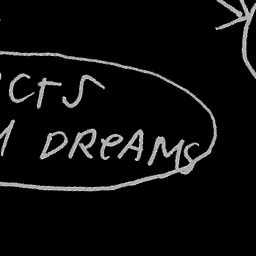 CTS
DREAMS